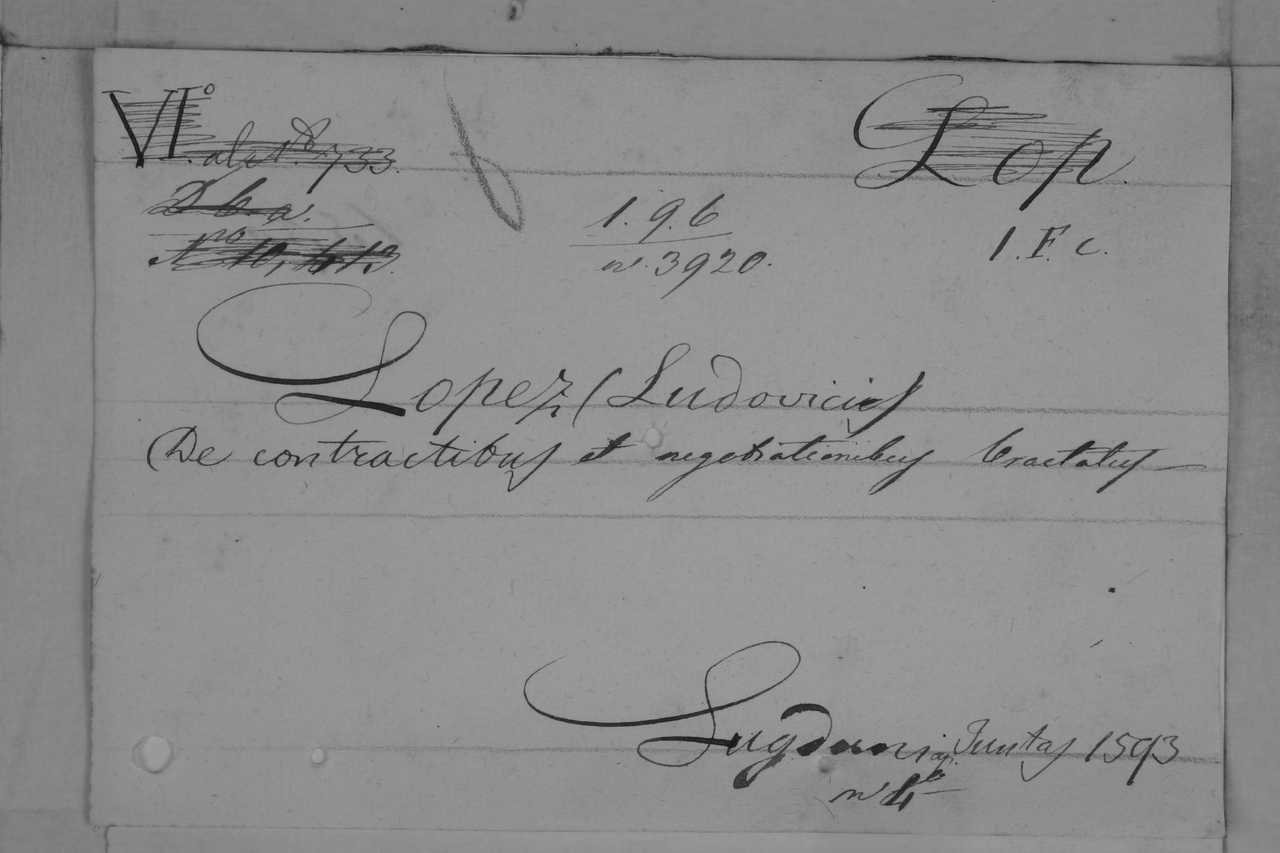 VI.° al. N.° 733.
Lop.
D. b. a.
N.ro 10,413.
1. 9. 6
n. 3920.
1. F. c.
Lopez (Ludovicus)
De contractibus et negotiationibus tractatus —
Lugduni ap. Juntas 1593
in 4.°